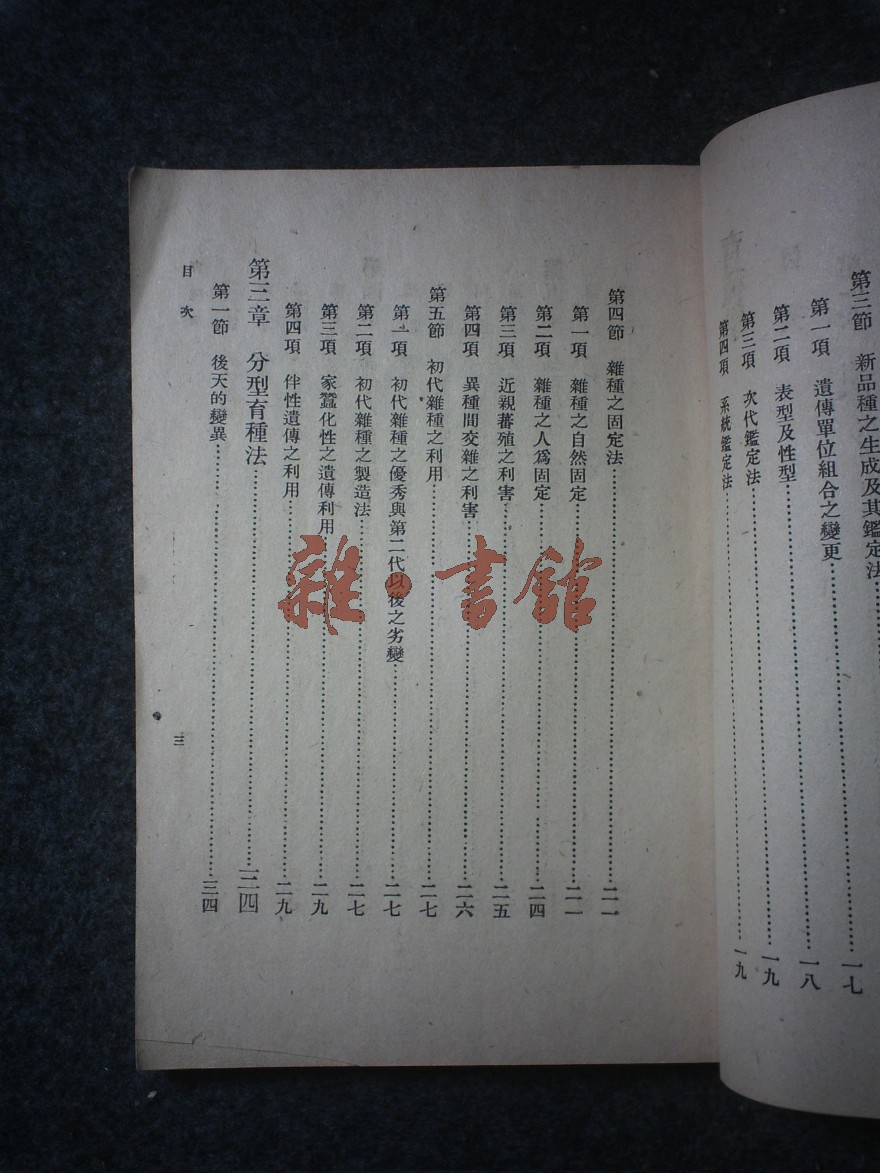 第三節　新品種之生成及其鑑定法…………一七
第一項　遺傳單位組合之變更…………一八
第二項　表型及性型…………一九
第三項　次代鑑定法…………一九
第四項　系統鑑定法…………一九
第四節　雜種之固定法…………二一
第一項　雜種之自然固定…………二一
第二項　雜種之人爲固定…………二四
第三項　近親蕃殖之利害…………二五
第四項　異種間交雜之利害…………二六
第五節　初代雜種之利用…………二七
第一項　初代雜種之優秀與第二代以後之劣變…………二七
第二項　初代雜種之製造法…………二七
第三項　家蠶化性之遺傳利用…………二九
第四項　伴性遺傳之利用…………二九
第三章　分型育種法…………三四
第一節　後天的變異…………三四
目次
三
雜·書館